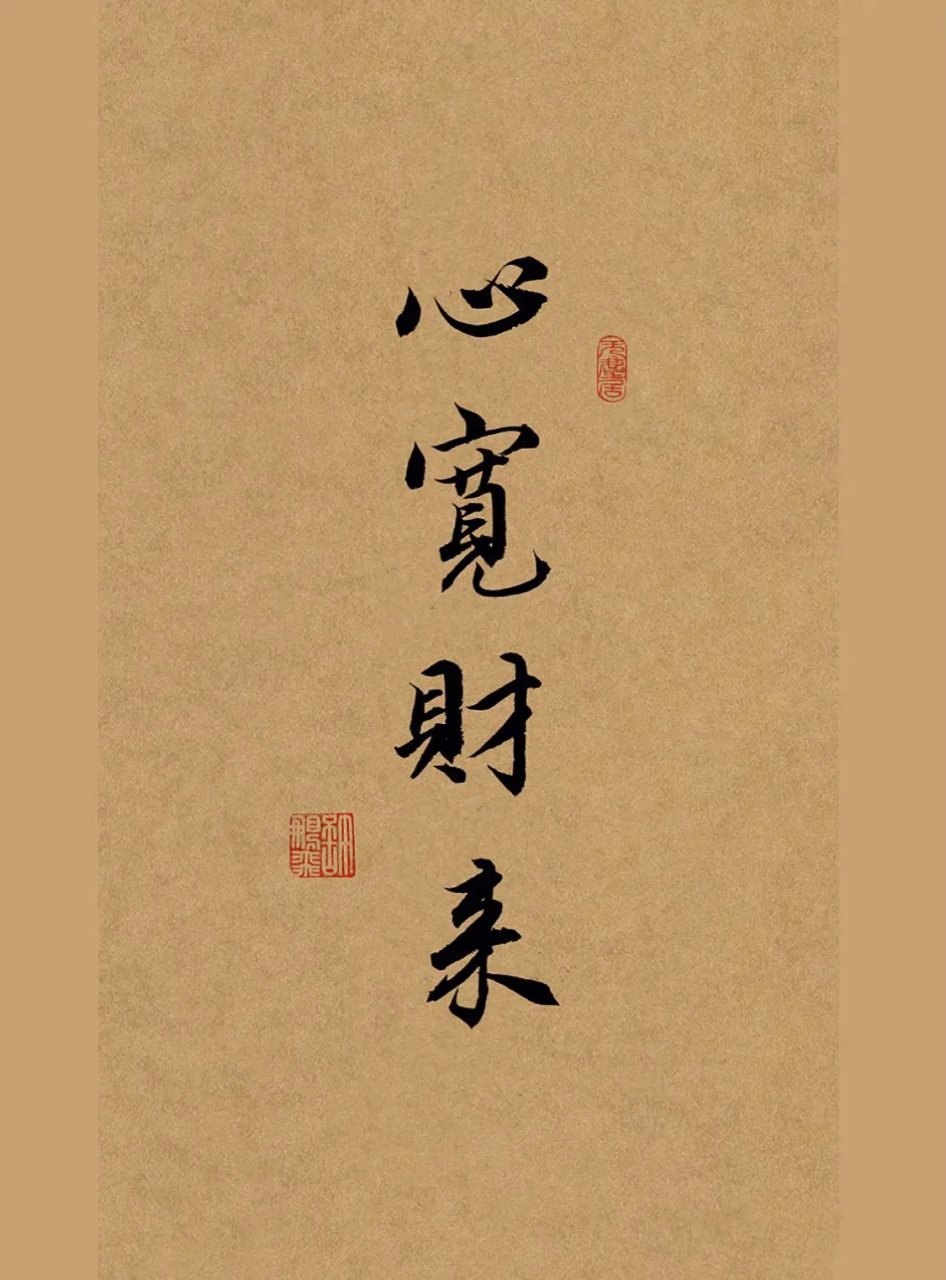 心寬財来